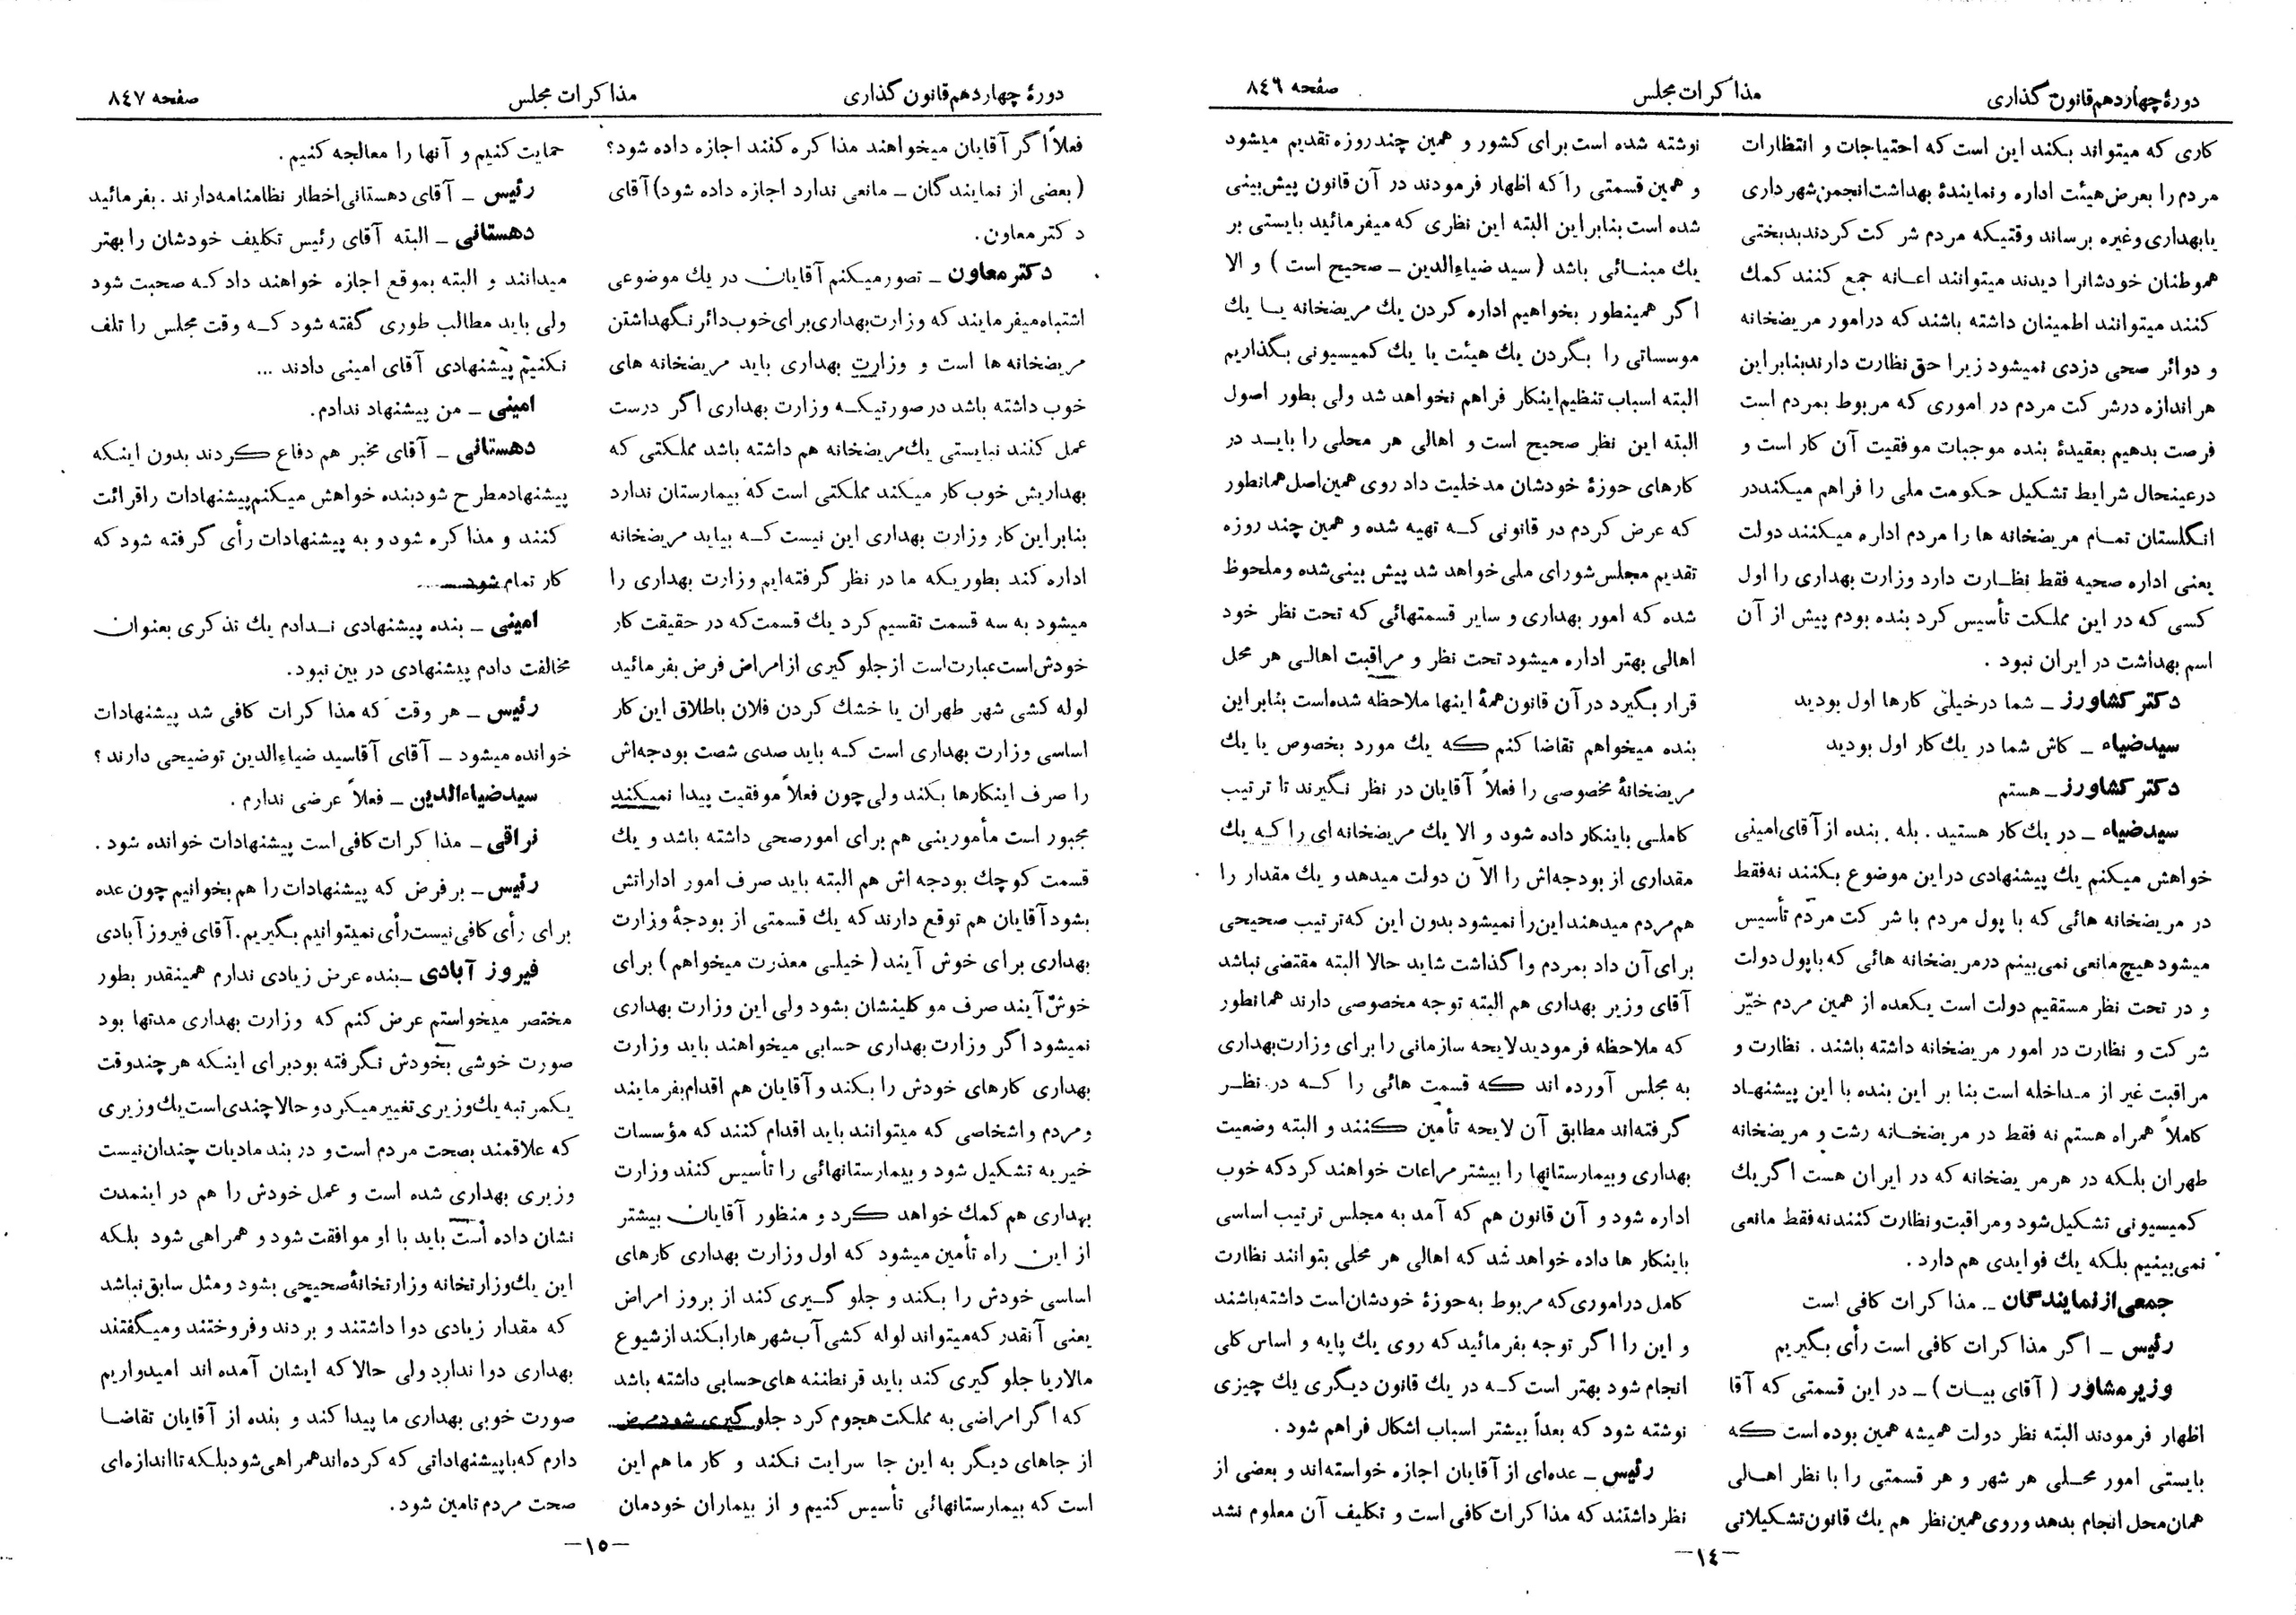 دورهٔ چهاردهم قانون گذاری
مذاکرات مجلس
صفحه ٨٤٦
کاری که میتواند بکند این است که احتیاجات و انتظارات
مردم را بعرض هیئت اداره و نمایندهٔ بهداشت انجمن شهرداری
یا بهداری و غیره برساند وقتیکه مردم شرکت کردند بدبختی
هموطنان خودشانرا دیدند میتوانند اعانه جمع کنند کمك
کنند میتوانند اطمینان داشته باشند که در امور مریضخانه
و دوائر صحی دزدی نمیشود زیرا حق نظارت دارند بنابراین
هر اندازه در شرکت مردم در اموری که مربوط بمردم است
فرصت بدهیم بعقیدهٔ بنده موجبات موفقیت آن کار است و
در عینحال شرایط تشکیل حکومت ملی را فراهم میکند در
انگلستان تمام مریضخانه ها را مردم اداره میکنند دولت
یعنی اداره صحیه فقط نظارت دارد وزارت بهداری را اول
کسی که در این مملکت تأسیس کرد بنده بودم پیش از آن
اسم بهداشت در ایران نبود .
دکتر کشاورز ــ شما در خیلی کارها اول بودید
سید ضیاء ــ کاش شما در یك کار اول بودید
دکتر کشاورز ــ هستم
سید ضیاء ــ در یك کار هستید . بله . بنده از آقای امینی
خواهش میکنم یك پیشنهادی در این موضوع بکنند نه فقط
در مریضخانه هائی که با پول مردم با شرکت مردم تأسیس
میشود هیچ مانعی نمی بینم در مریضخانه هائی که با پول دولت
و در تحت نظر مستقیم دولت است یکعده از همین مردم خیّر
شرکت و نظارت در امور مریضخانه داشته باشند . نظارت و
مراقبت غیر از مداخله است بنا بر این بنده با این پیشنهاد
کاملاً همراه هستم نه فقط در مریضخانه رشت و مریضخانه
طهران بلکه در هر مریضخانه که در ایران هست اگر یك
کمیسیونی تشکیل شود و مراقبت و نظارت کنند نه فقط مانعی
نمی بینیم بلکه یك فوایدی هم دارد .
جمعی از نمایندگان ــ مذاکرات کافی است
رئیس ــ اگر مذاکرات کافی است رأی بگیریم
وزیر مشاور ( آقای بیات ) ــ در این قسمتی که آقا
اظهار فرمودند البته نظر دولت همیشه همین بوده است که
بایستی امور محلی هر شهر و هر قسمتی را با نظر اهالی
همان محل انجام بدهد و روی همین نظر هم یك قانون تشکیلاتی
نوشته شده است برای کشور و همین چند روزه تقدیم میشود
و همین قسمتی را که اظهار فرمودند در آن قانون پیش بینی
شده است بنابراین البته این نظری که میفرمائید بایستی بر
یك مبنائی باشد ( سید ضیاءالدین ــ صحیح است ) و الا
اگر همینطور بخواهیم اداره کردن یك مریضخانه یا یك
موسساتی را بگردن یك هیئت یا یك کمیسیونی بگذاریم
البته اسباب تنظیم اینکار فراهم نخواهد شد ولی بطور اصول
البته این نظر صحیح است و اهالی هر محلی را باید در
کارهای حوزهٔ خودشان مدخلیت داد روی همین اصل همانطور
که عرض کردم در قانونی که تهیه شده و همین چند روزه
تقدیم مجلس شورای ملی خواهد شد پیش بینی شده و ملحوظ
شده که امور بهداری و سایر قسمتهائی که تحت نظر خود
اهالی بهتر اداره میشود تحت نظر و مراقبت اهالی هر محل
قرار بگیرد در آن قانون همهٔ اینها ملاحظه شده است بنابراین
بنده میخواهم تقاضا کنم که یك مورد بخصوص یا یك
مریضخانهٔ مخصوصی را فعلاً آقایان در نظر نگیرند تا ترتیب
کاملی باینکار داده شود و الا یك مریضخانه ای را که یك
مقداری از بودجه اش را الآن دولت میدهد و یك مقدار را
هم مردم میدهند این را نمیشود بدون این که ترتیب صحیحی
برای آن داد بمردم واگذاشت شاید حالا البته مقتضی نباشد
آقای وزیر بهداری هم البته توجه مخصوصی دارند همانطور
که ملاحظه فرمودید لایحه سازمانی را برای وزارت بهداری
به مجلس آورده اند که قسمت هائی را که در نظر
گرفته اند مطابق آن لایحه تأمین کنند و البته وضعیت
بهداری و بیمارستانها را بیشتر مراعات خواهند کرد که خوب
اداره شود و آن قانون هم که آمد به مجلس ترتیب اساسی
باینکار ها داده خواهد شد که اهالی هر محلی بتوانند نظارت
کامل در اموری که مربوط به حوزهٔ خودشان است داشته باشند
و این را اگر توجه بفرمائید که روی یك پایه و اساس کلی
انجام شود بهتر است که در یك قانون دیگری یك چیزی
نوشته شود که بعداً بیشتر اسباب اشکال فراهم شود .
رئیس ــ عده ای از آقایان اجازه خواسته اند و بعضی از
نظر داشتند که مذاکرات کافی است و تکلیف آن معلوم نشد
ــ١٤ــ
دورهٔ چهاردهم قانون گذاری
مذاکرات مجلس
صفحه ٨٤٧
فعلاً اگر آقایان میخواهند مذاکره کنند اجازه داده شود؟
( بعضی از نمایندگان ــ مانعی ندارد اجازه داده شود) آقای
دکتر معاون.
دکتر معاون ــ تصور میکنم آقایان در یك موضوعی
اشتباه میفرمایند که وزارت بهداری برای خوب دائر نگهداشتن
مریضخانه ها است و وزارت بهداری باید مریضخانه های
خوب داشته باشد در صورتیکه وزارت بهداری اگر درست
عمل کنند نبایستی یك مریضخانه هم داشته باشد مملکتی که
بهداریش خوب کار میکند مملکتی است که بیمارستان ندارد
بنابراین کار وزارت بهداری این نیست که بیاید مریضخانه
اداره کند بطوریکه ما در نظر گرفته ایم وزارت بهداری را
میشود به سه قسمت تقسیم کرد یك قسمت که در حقیقت کار
خودش است عبارت است از جلوگیری از امراض فرض بفرمائید
لوله کشی شهر طهران یا خشك کردن فلان باطلاق این کار
اساسی وزارت بهداری است که باید صدی شصت بودجه اش
را صرف اینکارها بکند ولی چون فعلاً موفقیت پیدا نمیکند
مجبور است مأمورینی هم برای امور صحی داشته باشد و یك
قسمت کوچك بودجه اش هم البته باید صرف امور اداراتش
بشود آقایان هم توقع دارند که یك قسمتی از بودجهٔ وزارت
بهداری برای خوش آیند ( خیلی معذرت میخواهم ) برای
خوش آیند صرف موکلینشان بشود ولی این وزارت بهداری
نمیشود اگر وزارت بهداری حسابی میخواهند باید وزارت
بهداری کارهای خودش را بکند و آقایان هم اقدام بفرمایند
و مردم و اشخاصی که میتوانند باید اقدام کنند که مؤسسات
خیریه تشکیل شود و بیمارستانهائی را تأسیس کنند وزارت
بهداری هم کمك خواهد کرد و منظور آقایان بیشتر
از این راه تأمین میشود که اول وزارت بهداری کارهای
اساسی خودش را بکند و جلوگیری کند از بروز امراض
یعنی آنقدر که میتواند لوله کشی آب شهر هارا بکند از شیوع
مالاریا جلوگیری کند باید قرنطننه های حسابی داشته باشد
که اگر امراضی به مملکت هجوم کرد جلوگیری شود مرض
از جاهای دیگر به این جا سرایت نکند و کار ما هم این
است که بیمارستانهائی تأسیس کنیم و از بیماران خودمان
حمایت کنیم و آنها را معالجه کنیم.
رئیس ــ آقای دهستانی اخطار نظامنامه دارند . بفرمائید
دهستانی ــ البته آقای رئیس تکلیف خودشان را بهتر
میدانند و البته بموقع اجازه خواهند داد که صحبت شود
ولی باید مطالب طوری گفته شود که وقت مجلس را تلف
نکنیم پیشنهادی آقای امینی دادند ...
امینی ــ من پیشنهاد ندادم.
دهستانی ــ آقای مخبر هم دفاع کردند بدون اینکه
پیشنهاد مطرح شود بنده خواهش میکنم پیشنهادات را قرائت
کنند و مذاکره شود و به پیشنهادات رأی گرفته شود که
کار تمام شود ...
امینی ــ بنده پیشنهادی ندادم یك تذکری بعنوان
مخالفت دادم پیشنهادی در بین نبود.
رئیس ــ هر وقت که مذاکرات کافی شد پیشنهادات
خوانده میشود ــ آقای آقاسید ضیاءالدین توضیحی دارند ؟
سید ضیاءالدین ــ فعلاً عرضی ندارم .
نراقی ــ مذاکرات کافی است پیشنهادات خوانده شود .
رئیس ــ بر فرض که پیشنهادات را هم بخوانیم چون عده
برای رأی کافی نیست رأی نمیتوانیم بگیریم. آقای فیروزآبادی
فیروز آبادی ــ بنده عرض زیادی ندارم همینقدر بطور
مختصر میخواستم عرض کنم که وزارت بهداری مدتها بود
صورت خوشی بخودش نگرفته بود برای اینکه هر چند وقت
یکمرتبه یك وزیری تغییر میکرد و حالا چندی است یك وزیری
که علاقمند بصحت مردم است و در بند مادیات چندان نیست
وزیری بهداری شده است و عمل خودش را هم در اینمدت
نشان داده است باید با او موافقت شود و همراهی شود بلکه
این یك وزارتخانه وزارتخانهٔ صحیحی بشود و مثل سابق نباشد
که مقدار زیادی دوا داشتند و بردند و فروختند و میگفتند
بهداری دوا ندارد ولی حالا که ایشان آمده اند امیدواریم
صورت خوبی بهداری ما پیدا کند و بنده از آقایان تقاضا
دارم که با پیشنهاداتی که کرده اند همراهی شود بلکه تا اندازه ای
صحت مردم تامین شود.
ــ١٥ــ